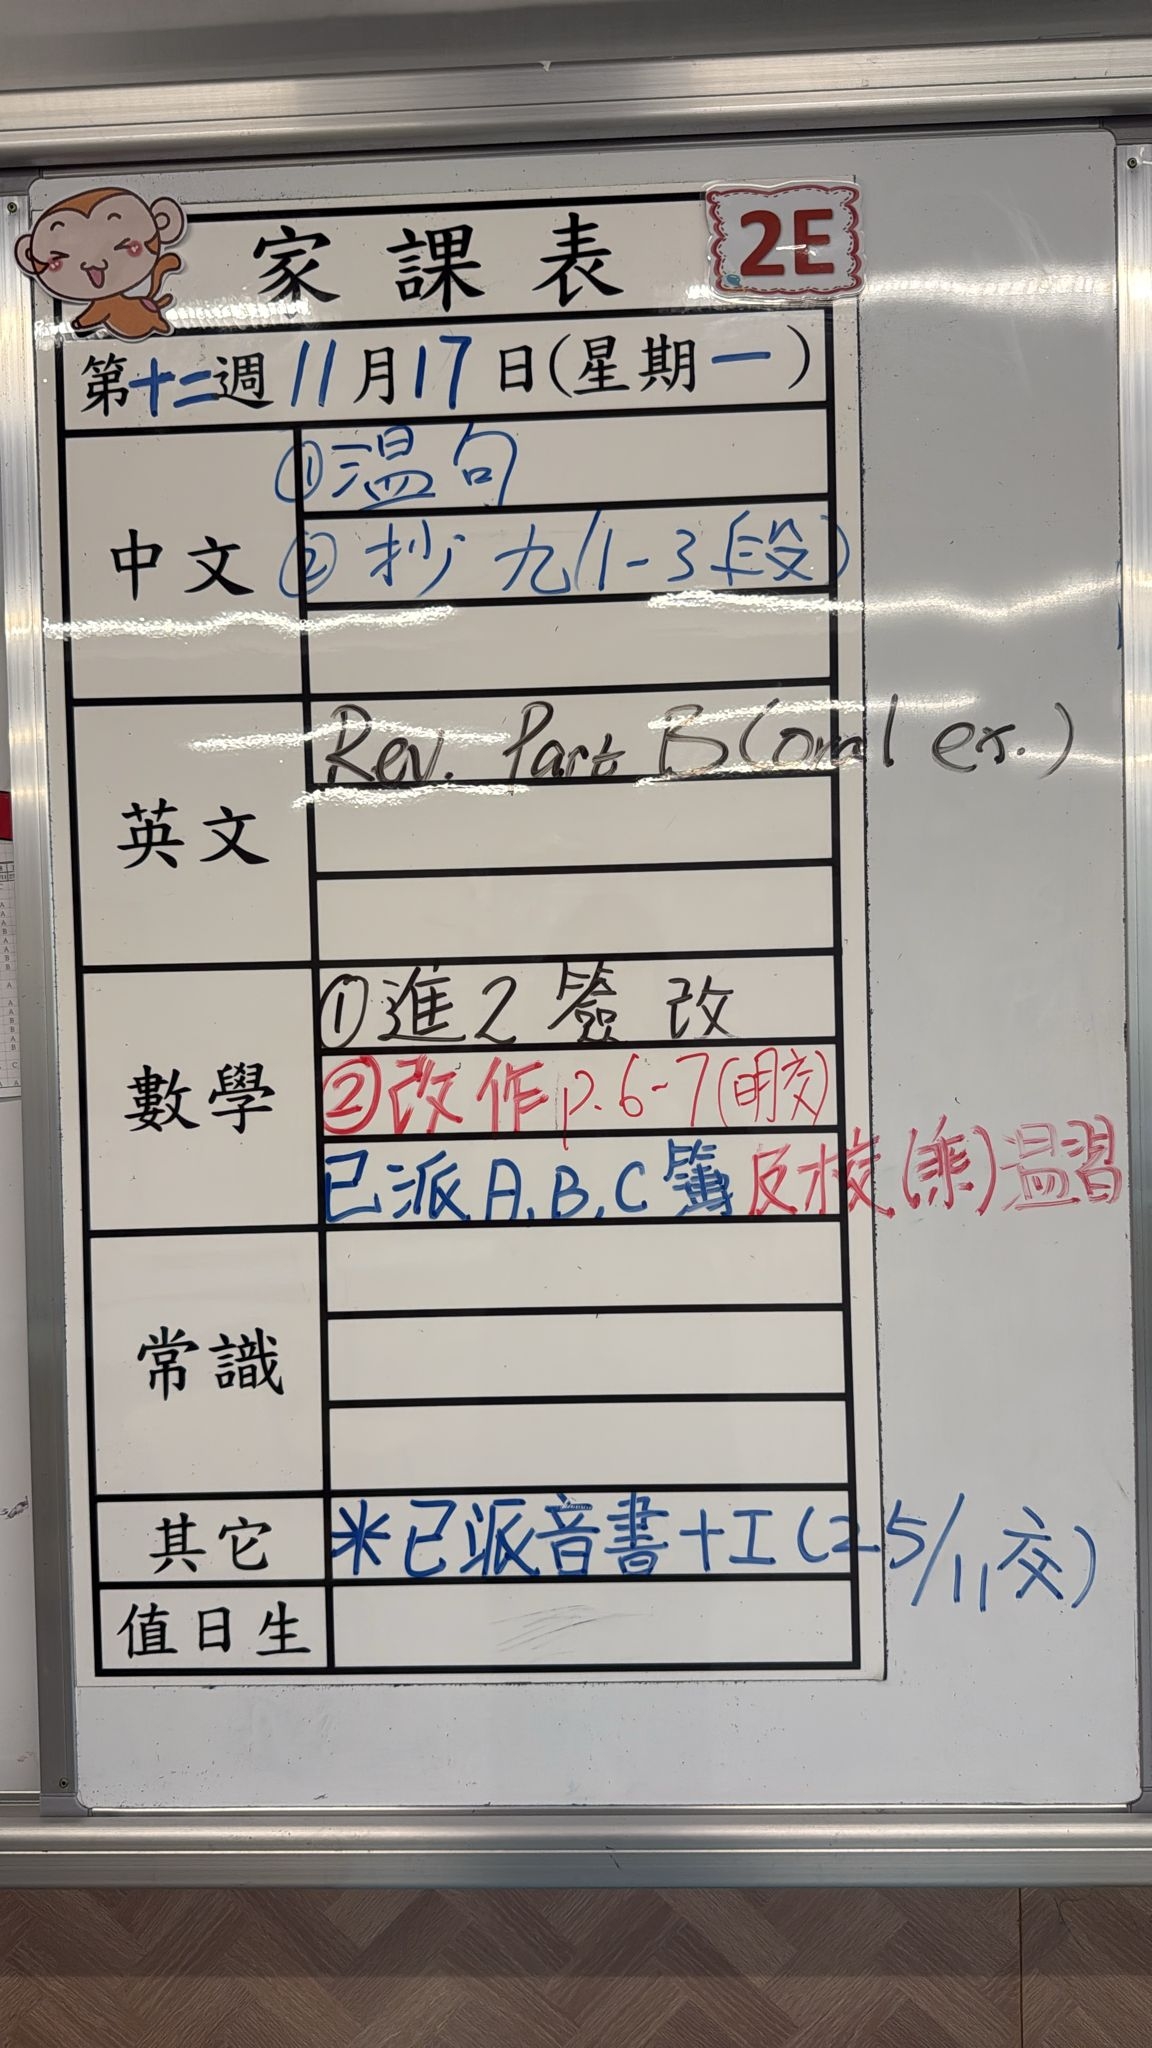 家課表
2E
第十二週 11月17日(星期一)
中文
①温句
②抄九(1-3段)
英文
Rev. Part B (oral ex.)
數學
①進2簽改
②改作p.6-7(明交)
已派A,B,C簿 反校(乘)温習
常識
其它
*已派音書+工(25/11交)
值日生